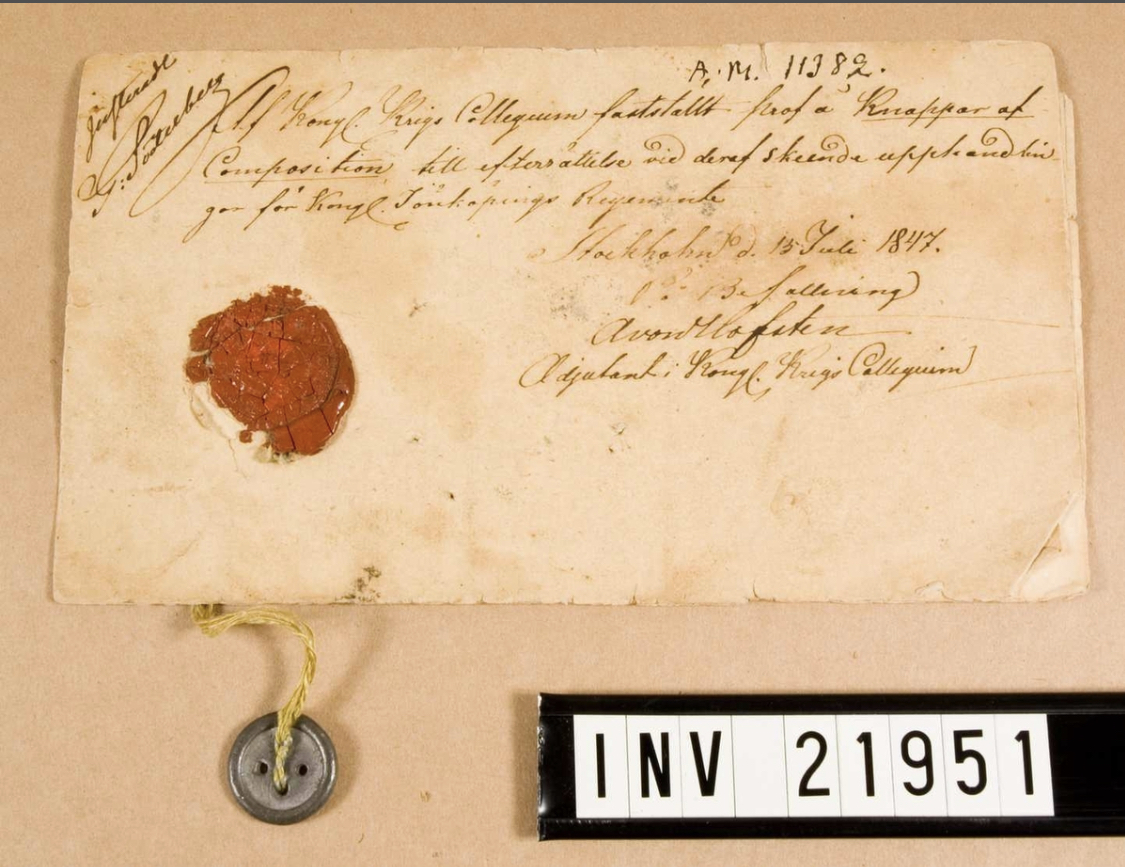 Justeradt
G: Söderberg
A.M. 11382.
Af Kongl. Krigs Collegium fastställt prof å Knappar af
Composition till efterrättelse vid deraf skeende upphandlin-
gar för Kongl. Jönköpings Regemente
Stockholm d. 15 Juli 1847.
På Befallning
Avon Hofsten
Adjutant i Kongl. Krigs Collegium
INV 21951